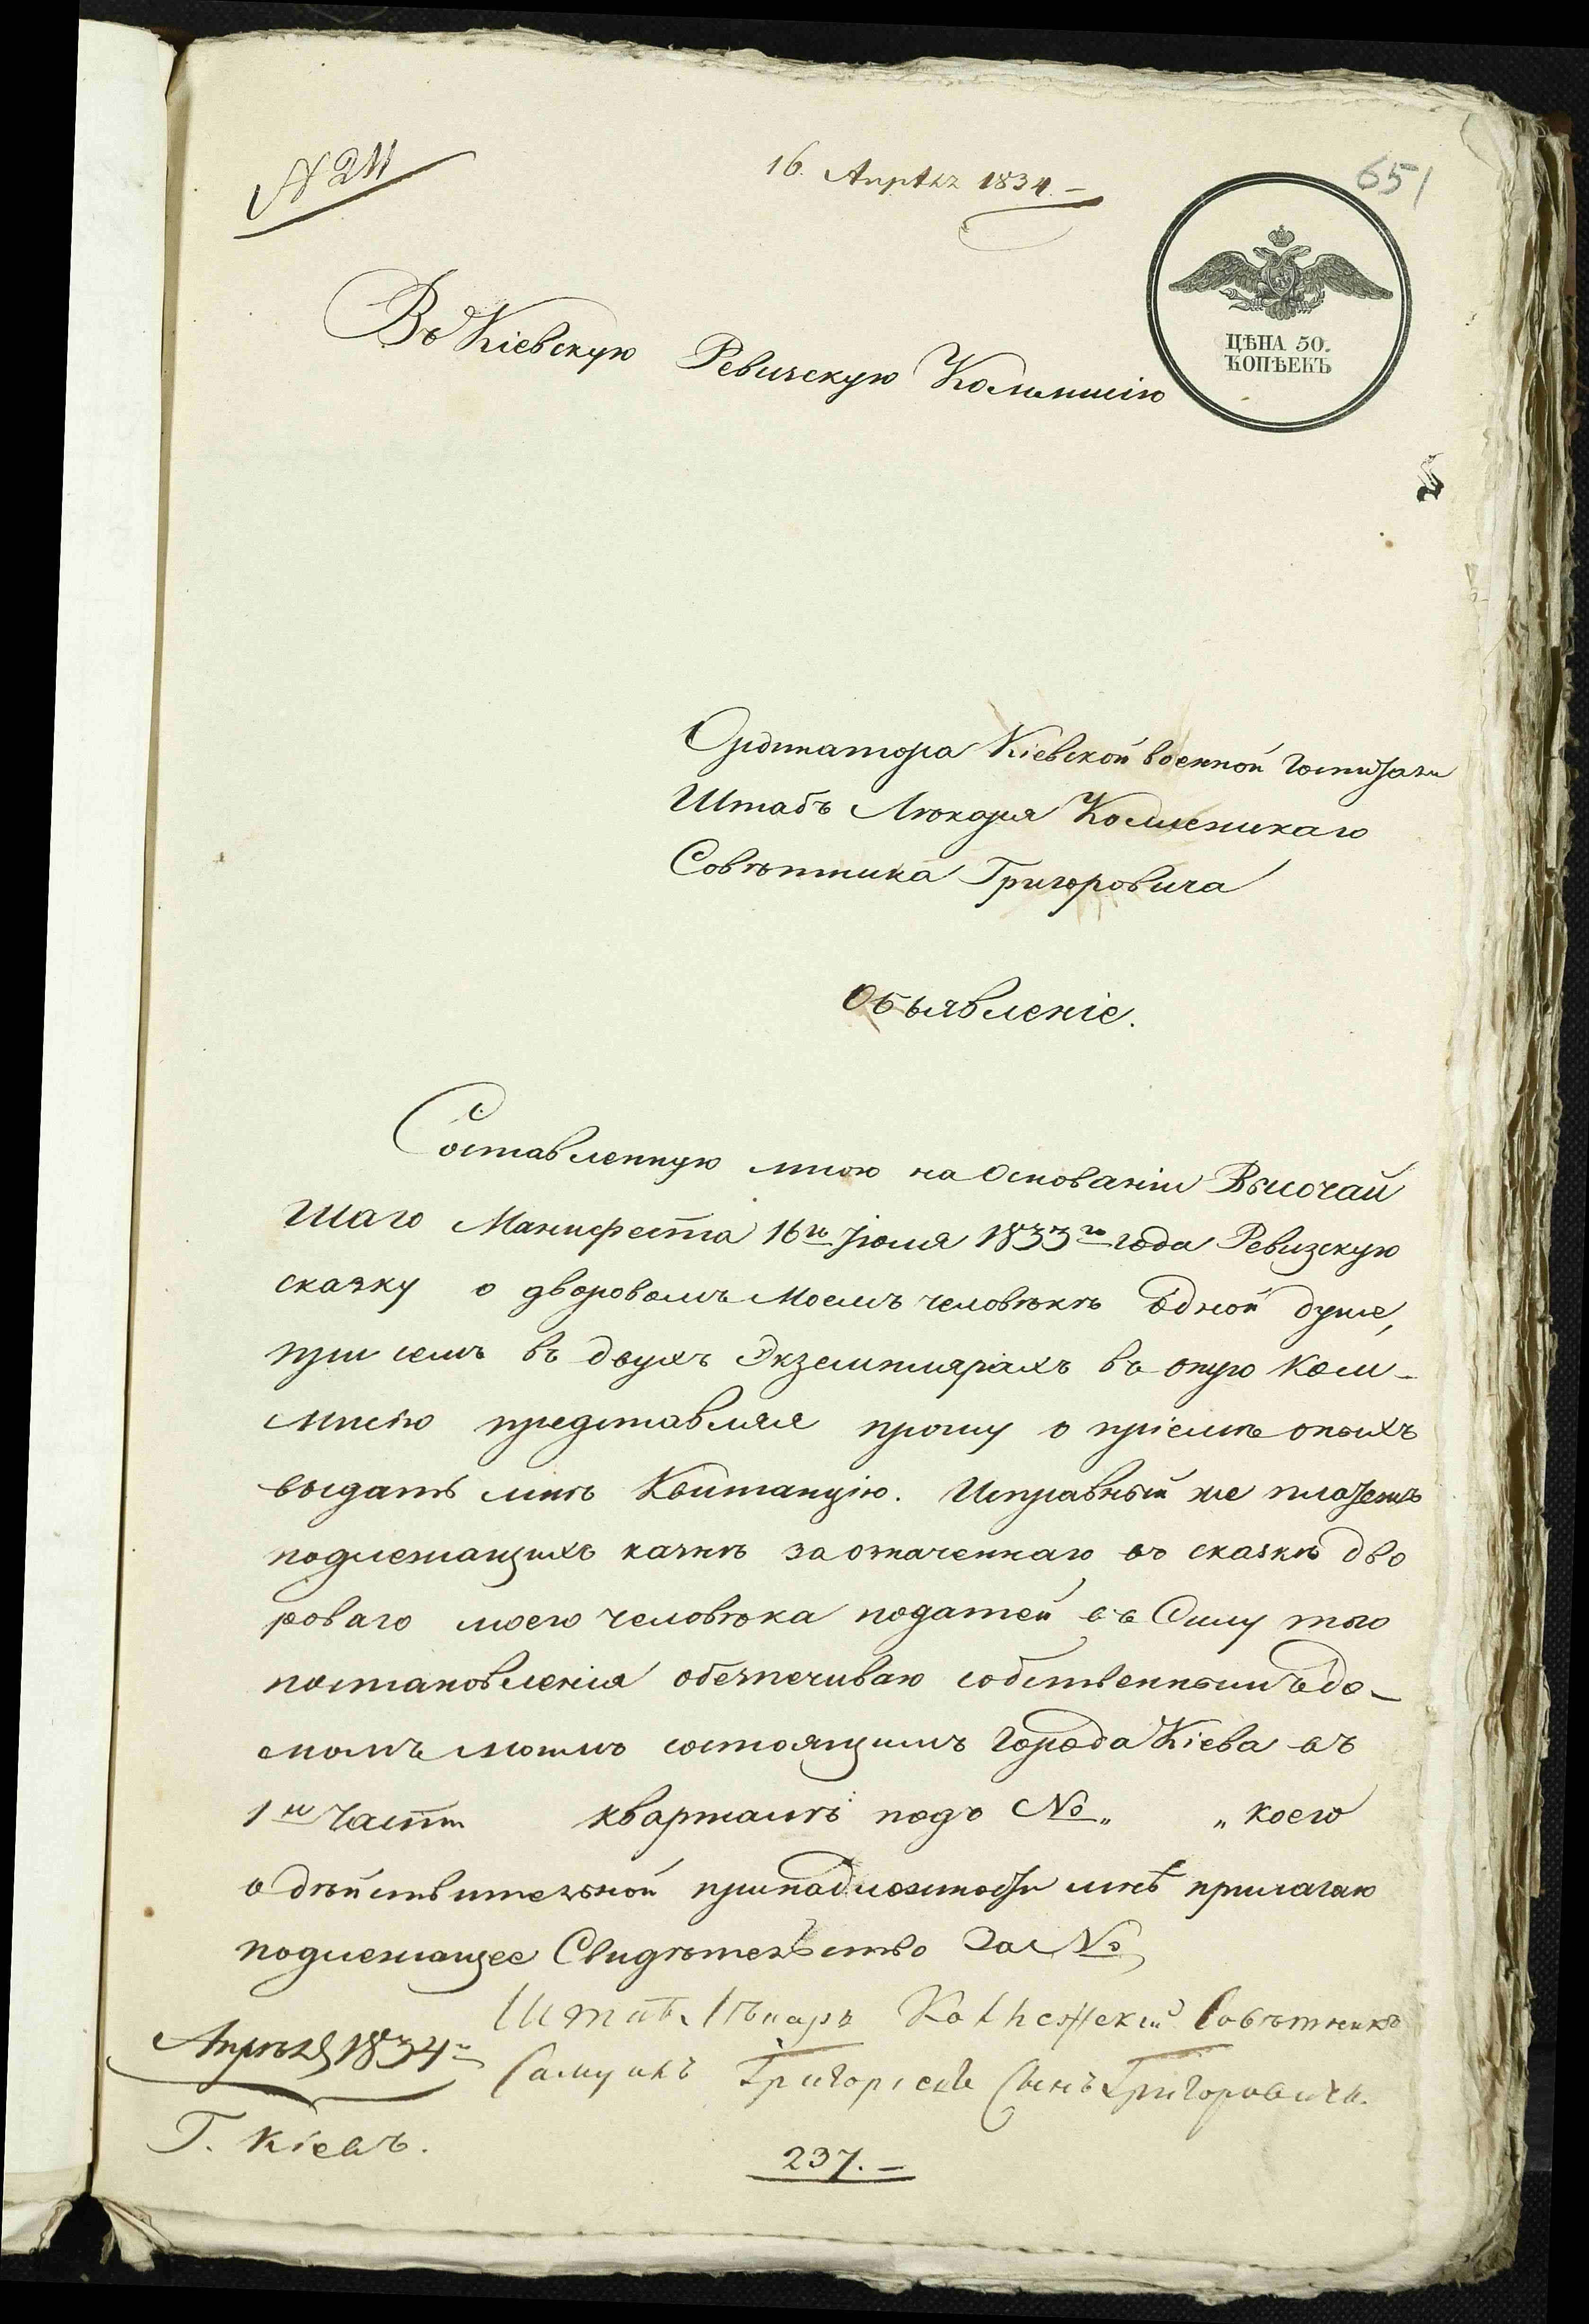 N 211
16. Апрѣля 1834.-
651
ЦѢНА 50.
КОПѢЕКЪ
Въ Кіевскую Ревизскую Коммисію
Ординатора Кіевской военной Госпитали
Штабъ Лекаря Коллежскаго
Совѣтника Григоровича
Объявленіе.
Составленную мною на основаніи Высочай
шаго Манифеста 16го Іюня 1833го года Ревизскую
сказку о дворовомъ моемъ человѣкѣ одной душе,
при семъ въ двухъ Экземплярахъ въ оную Ком-
мисію представляя прошу о пріемѣ оныхъ
выдать мнѣ Квитанцію. Исправный же платежъ
подлежащихъ казнѣ за означеннаго въ сказкѣ дво
роваго моего человѣка податей въ Силу того
постановленія обезпечиваю собственнымъ до-
момъ моимъ состоящимъ Города Кіева въ
1й Части кварталѣ подъ № „ „ коего
о дѣйствительной принадлежности мнѣ прилагаю
подлежащее Свидѣтельство За №
Штабъ Лѣкарь Коллежскій Совѣтникъ
Апрѣля 1834го
Самуилъ Григоріевъ Сынъ Григоровичъ.
Г. Кіевъ.
237.-